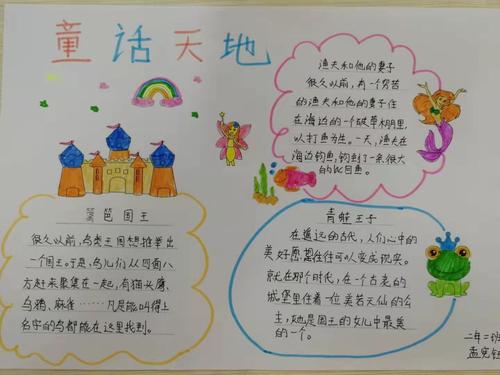 童话天地
渔夫和他的妻子
很久以前,有一个穷苦
的渔夫和他的妻子住
在海边的一个破草棚里,
以打鱼为生。一天,渔夫在
海边钓鱼,钓到了一条很大
的比目鱼。
篱笆国王
很久以前,鸟类王国想推举出
一个国王。于是,鸟儿们从四面八
方赶来聚集在一起,有猫头鹰、
乌鸦、麻雀……凡是能叫得上
名字的鸟都能在这里找到。
青蛙王子
在遥远的古代,人们心中的
美好愿望往往可以变成现实。
就在那个时代,在一个古老的
城堡里住着一位美若天仙的公
主,她是国王的女儿中最美
的一个。
二年二班